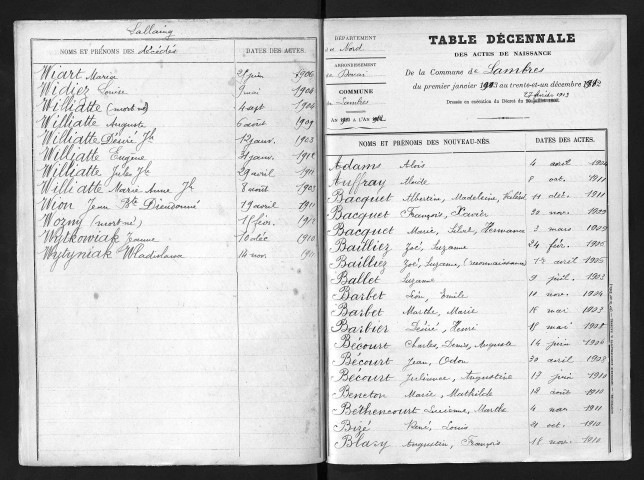 Lallaing
NOMS ET PRÉNOMS DES décédés DATES DES ACTES.
Wiart Maria 21 juin 1906
Widiez Louise 9 mai 1904
Williatte (mort né) 4 août 1904
Williatte Auguste 6 août 1909
Williatte Désiré Jh 12 janv. 1903
Williatte Eugène 31 janv. 1912
Williatte Jules Jh 29 avril 1911
Williatte Marie Anne Jh 8 août 1903
Wion Jean Bte Dieudonné 19 avril 1911
Wozny (mort né) 18 fév. 1912
Wytkowiak Jeanne 10 déc 1910
Wytyniak Wladislawa 14 nov. 1911
DÉPARTEMENT
du Nord
ARRONDISSEMENT
de Douai
COMMUNE
de Lambres
AN 1903 A L'AN 1912
TABLE DÉCENNALE
DES ACTES DE NAISSANCE
De la Commune de Lambres
du premier janvier 1903 au trente-et-un décembre 1912
Dressée en exécution du Décret du
NOMS ET PRÉNOMS DES NOUVEAU-NÉS. DATES DES ACTES.
Adams Aloïs 4 août 1904
Auffray 8 oct. 1911
Bacquet Albertine, Madeleine, 11 déc. 1911
Bacquet François, Xavier 20 nov. 1909
Bacquet Marie, Hermance 3 mars 1909
Bailliez Zoé, Suzanne 24 fév. 1905
Bailliez Zoé, Suzanne, (reconnaissance) 17 avril 1905
Ballet Suzanne 9 juil. 1903
Barbet Léon, Emile 10 nov. 1904
Barbet Marthe, Marie 18 mai 1903
Barbier Désiré, Henri 18 mai 1908
Bécourt Charles, Denis, Auguste 14 juin 1906
Bécourt Jean, Odon 30 avril 1908
Bécourt Julienne, Augustine 17 juin 1910
Beneton Marie, Mathilde 18 août 1910
Bethencourt Lucienne, Marthe 4 nov. 1911
Bizé René, Louis 21 oct. 1910
Blasy Augustin, François 18 nov. 1910